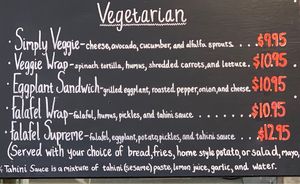 Vegetarian
· Simply Veggie - cheese, avocado, cucumber, and alfalfa sprouts. . . $9.95
· Veggie Wrap - spinach tortilla, humus, shredded carrots, and lettuce. $10.95
Eggplant Sandwich - grilled eggplant, roasted pepper, onion, and cheese. $10.95
· Falafel Wrap - falafel, humus, pickles, and tahini sauce . . . . . $10.95
· Falafel Supreme - falafel, eggplant, potato, pickles, and tahini sauce . . . $12.95
(Served with your choice of bread, fries, home style potato, or salad, mayo,
Tahini Sauce is a mixture of tahini (sesame) paste, lemon juice, garlic, and water.